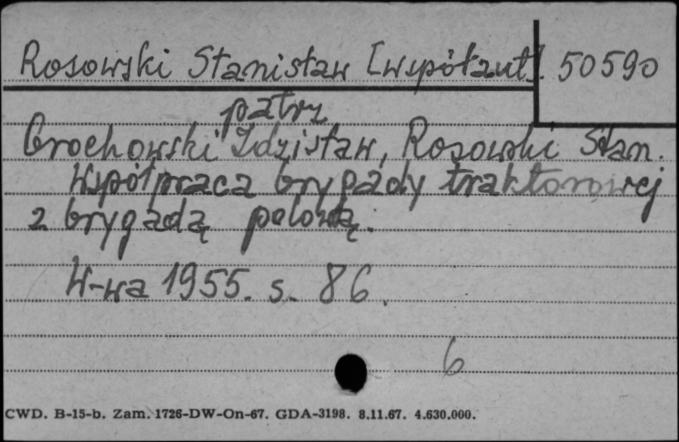 Rosowski Stanisław [współaut]. 50590
patrz
Grochowski Zdzisław, Rosowski Stan.
Współpraca brygady traktorowej
z brygadą polową.
W-wa 1955. s. 86.
6
CWD. B-15-b. Zam. 1726-DW-On-67. GDA-3198. 8.11.67. 4.630.000.